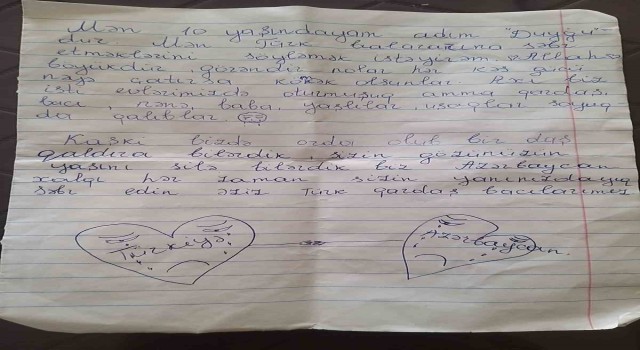 Mən 10 yaşındayam adım "Duyğu"
dur Mən Türk balalarına səbr
etməklərini söyləmək istəyirəm, Allah
böyükdür, nolar hər kəs
çadırda olsunlar biz
isti evlərimizdə oturmuşuq amma qardaş,
bacı, nənə, baba, yaşlılar, uşaqlar soyuq
da qalıblar
Kaşki bizdə orda olub bir daş
qaldıra bilərdik, sizin gözünüzün
yaşını silə bilərdik biz Azərbaycan
xalqı hər zaman sizin yanınızdayıq
səbr edin əziz Türk qardaş bacılarımız
Türkiyə
Azərbaycan.